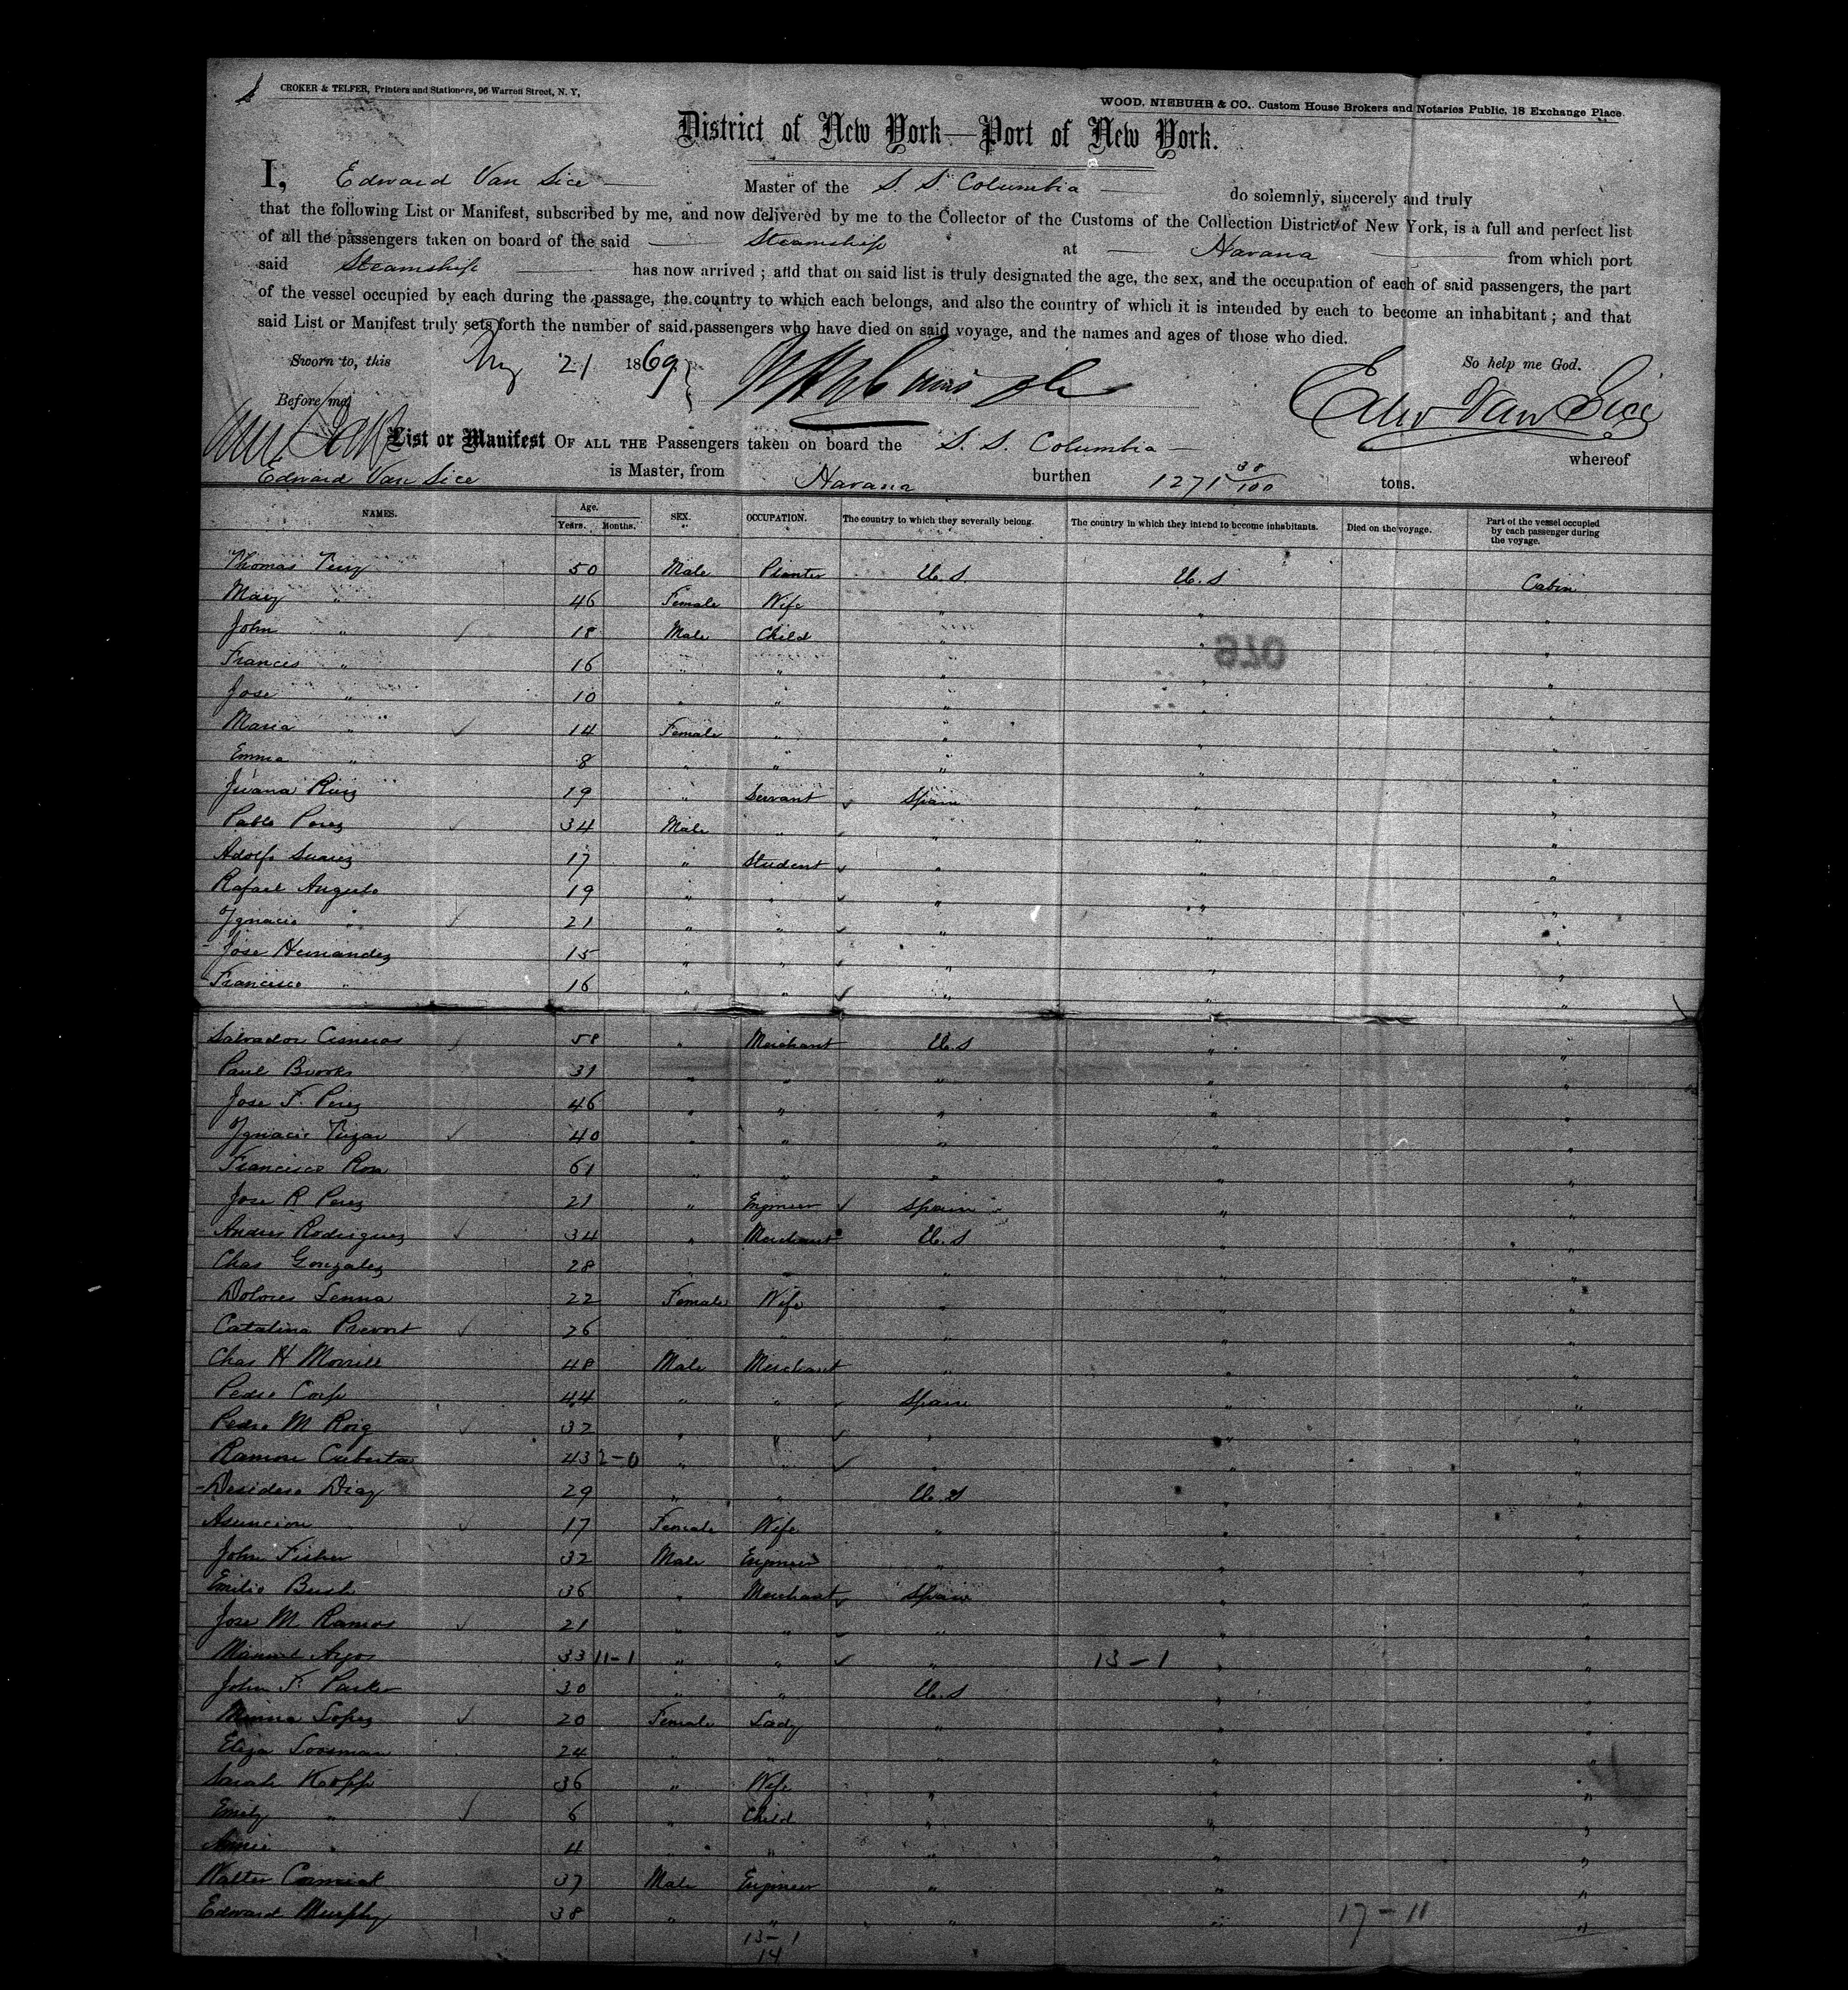 CROKER & TELFER, Printers and Stationers, 96 Warren Street, N. Y,
WOOD, NIEBUHR & CO. Custom House Brokers and Notaries Public, 18 Exchange Place.
District of New York—Port of New York.
I, Edward Van Sice Master of the S. S. Columbia do solemnly, sincerely and truly
that the following List or Manifest, subscribed by me, and now delivered by me to the Collector of the Customs of the Collection District of New York, is a full and perfect list
of all the passengers taken on board of the said Steamship at Havana from which port
said Steamship has now arrived ; and that on said list is truly designated the age, the sex, and the occupation of each of said passengers, the part
of the vessel occupied by each during the passage, the country to which each belongs, and also the country of which it is intended by each to become an inhabitant ; and that
said List or Manifest truly sets forth the number of said passengers who have died on said voyage, and the names and ages of those who died.
Sworn to, this 21 1869 So help me God.
Before me Edw Van Sice
List or Manifest OF ALL THE Passengers taken on board the S. S. Columbia whereof
Edward Van Sice is Master, from Havana burthen 1271 38/100 tons.
NAMES. Age. Years. Months. SEX. OCCUPATION. The country to which they severally belong. The country in which they intend to become inhabitants. Died on the voyage. Part of the vessel occupied by each passenger during the voyage.
Thomas 50 Male Planter U. S. U. S Cabin
Mary " 46 Female Wife " " "
John " 18 Male Child " " "
Frances " 16 " " " " "
Jose " 10 " " " " "
Maria " 14 Female " " " "
Emma " 8 " " " " "
Juana Ruiz 19 " Servant Spain " "
Pablo Perez 34 Male " " " "
Adolfo Suarez 17 " Student " " "
Rafael Angulo 19 " " " " "
Ignacio " 21 " " " " "
Jose Hernandez 15 " " " " "
Francisco " 16 " " " " "
Salvador Cisneros 58 " Merchant U. S " "
Paul Brooks 31 " " " " "
Jose F. Perez 46 " " " " "
Ignacio 40 " " " " "
Francisco 61 " " " " "
Jose R Perez 21 " Engineer Spain " "
Andres Rodriguez 34 " Merchant U. S " "
Chas Gonzalez 28 " " " " "
Dolores 22 Female Wife " " "
Catalina Prevost 26 " " " " "
Chas H Morrill 48 Male Merchant " " "
Pedro 44 " " Spain " "
Pedro M Roig 32 " " " " "
Ramon 43 2-0 " " " " "
Desiderio Diaz 29 " " U. S " "
Asuncion " 17 Female Wife " " "
John Fisher 32 Male Engineer " " "
Emilio Bush 36 " Merchant Spain " "
Jose M Ramos 21 " " " " "
Manuel 33 11-1 " " " 13-1 " "
John F. Parker 30 " " U. S " "
Lopez 20 Female Lady " " "
Eliza 24 " " " " "
Sarah Kopp 36 " Wife " " "
Emily " 6 " Child " " "
Annie " 4 " " " " "
Walter 37 Male Engineer " " "
Edward Murphy 38 " " " " 17-11 "
13-1
14